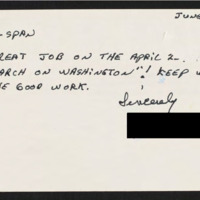 JUNE
-SPAN
REAT JOB ON THE APRIL 2
ARCH ON WASHINGTON"! KEEP
E GOOD WORK.
Sincerely